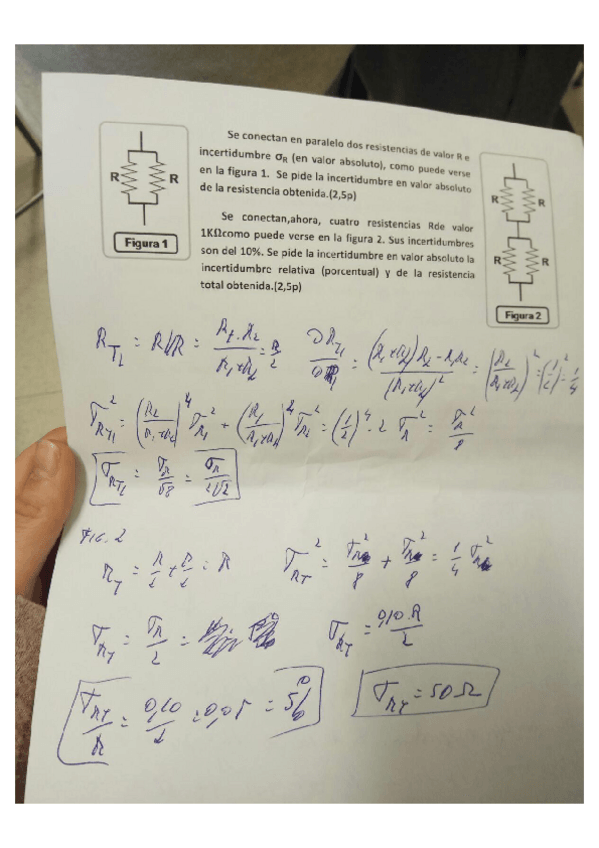 Se conectan en paralelo dos resistencias de valor R e
incertidumbre σR (en valor absoluto), como puede verse
en la figura 1. Se pide la incertidumbre en valor absoluto
de la resistencia obtenida.(2,5p)
R R
Figura 1
Se conectan,ahora, cuatro resistencias Rde valor
1KΩcomo puede verse en la figura 2. Sus incertidumbres
son del 10%. Se pide la incertidumbre en valor absoluto la
incertidumbre relativa (porcentual) y de la resistencia
total obtenida.(2,5p)
R R
R R
Figura 2
R_T1 = R//R = R1·R2/(R1+R2) = R/2 ∂R_T1/∂R1 = ((R1+R2)R2 - R1R2)/(R1+R2)² = (R2/(R1+R2))² = (1/2)² = 1/4
σ_RT1² = (R2/(R1+R2))⁴ σ_R1² + (R1/(R1+R2))⁴ σ_R2² = (1/2)⁴ · 2 σ_R² = σ_R²/8
σ_RT1 = σ_R/√8 = σ_R/2√2
FIG. 2
R_T = R/2 + R/2 = R σ_RT² = σ_R²/8 + σ_R²/8 = 1/4 σ_R²
σ_RT = σ_R/2 = σ_RT = 0,10·R/2
σ_RT/R = 0,10/2 = 0,05 = 5% σ_RT = 50Ω